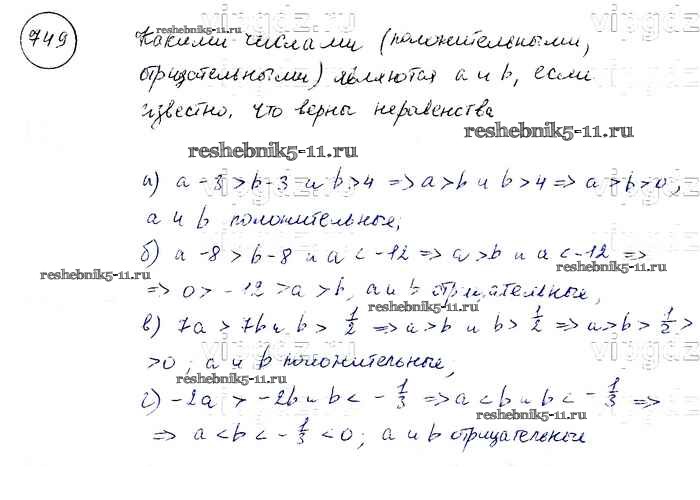 749
Какими числами (положительными,
отрицательными) являются a и b, если
известно, что верны неравенства
а) a-3>b-3 и b>4 => a>b и b>4 => a>b>0,
a и b положительные;
б) a-8>b-8 и a<-12 => a>b и a<-12 =>
=> 0>-12>a>b, a и b отрицательные,
в) 7a>7b и b>1/2 => a>b и b>1/2 => a>b>1/2>
>0, a и b положительные;
г) -2a>-2b и b<-1/3 => a<b и b<-1/3 =>
=> a<b<-1/3<0; a и b отрицательные
reshebnik5-11.ru
reshebnik5-11.ru
reshebnik5-11.ru
reshebnik5-11.ru
reshebnik5-11.ru
reshebnik5-11.ru
reshebnik5-11.ru